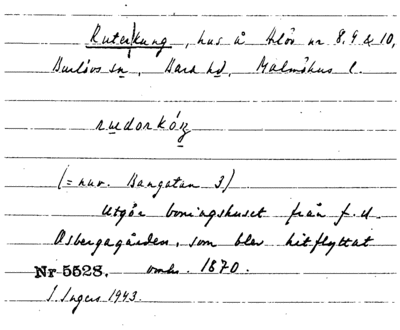 Ruter|kung, hus å Arlöv nr 8, 9 & 10,
Burlövs sn, Bara hd, Malmöhus l.
rudorkóŋ
(= nuv. Bangatan 3)
Utgör boningshuset från f. d.
Åsbergagården, som blev hitflyttat
Nr 5528. omkr. 1870.
I. Ingers 1943.